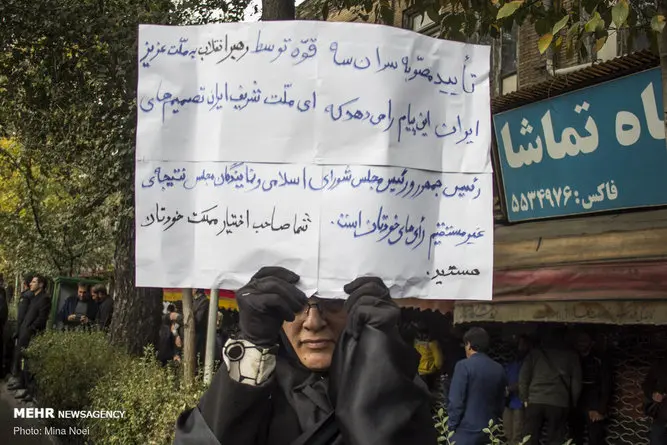 تأیید مصوبه سران سه قوه توسط رهبر انقلاب به ملّت عزیز
ایران این پیام را می‌دهد که ای ملّت شریف ایران تصمیم‌های
رئیس جمهور و رئیس مجلس شورای اسلامی و نمایندگان مجلس نتیجه‌ی
غیر مستقیم رأی‌های خودتان است. شما صاحب اختیار مملکت خودتان
هستید.
اه تماشا
فاکس: ۵۵۳۴۹۷۶
MEHR NEWSAGENCY
Photo: Mina Noei